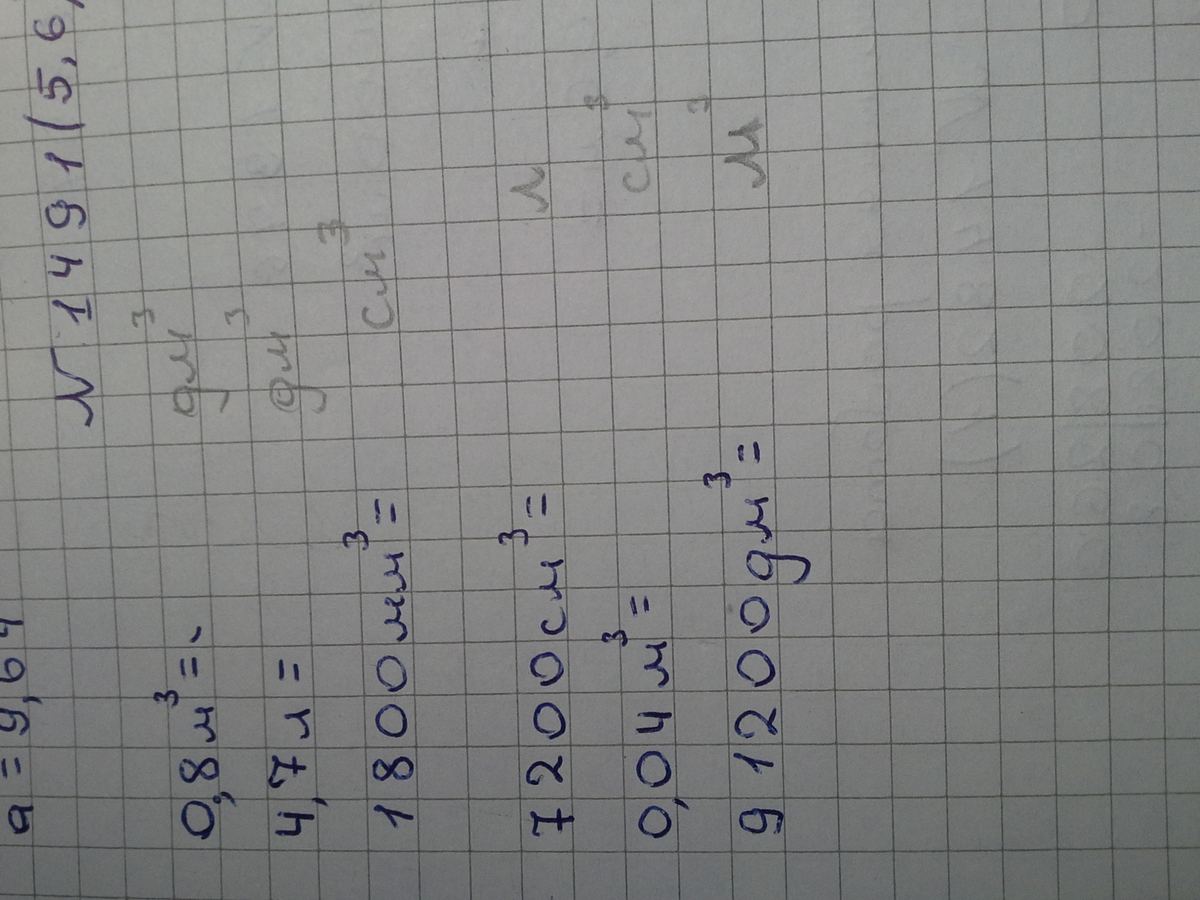 a = 9,64
№ 1491 (5, 6,
0,8 м³ = дм³
4,7 л = дм³
1800 мм³ = см³
7200 см³ = л
0,04 м³ = см³
91200 дм³ = м³